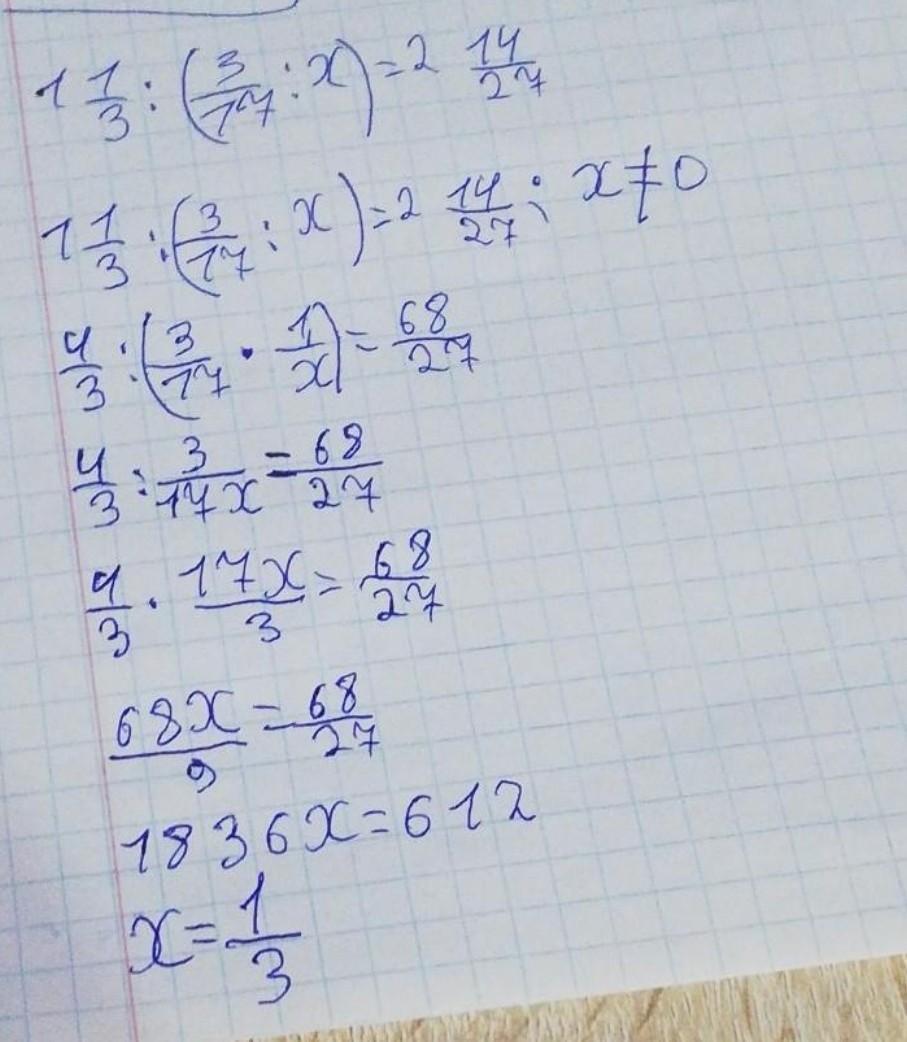 1 1/3 : (3/17 : x) = 2 14/27
1 1/3 : (3/17 : x) = 2 14/27 ; x ≠ 0
4/3 : (3/17 · 1/x) = 68/27
4/3 : 3/17x = 68/27
4/3 · 17x/3 = 68/27
68x/9 = 68/27
1836x = 612
x = 1/3